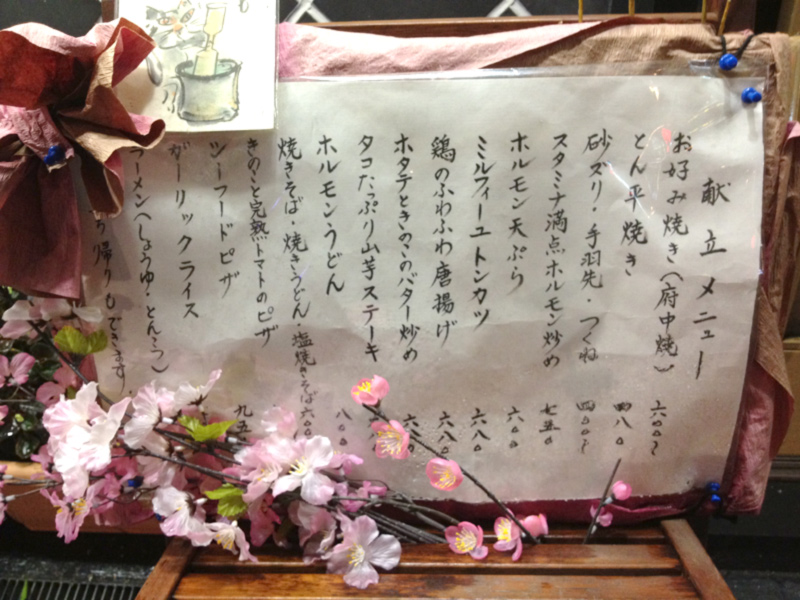 献立メニュー
お好み焼き(府中焼) 六００〜
とん平焼き 四八０
砂ズリ・手羽先・つくね 四００〜
スタミナ満点ホルモン炒め 七五０
ホルモン天ぷら 六００
ミルフィーユトンカツ 六八０
鶏のふわふわ唐揚げ 六八０
ホタテときのこのバター炒め
タコたっぷり山芋ステーキ
ホルモンうどん 八００
焼きそば・焼きうどん・塩焼きそば 六００
きのこと完熟トマトのピザ 九五
シーフードピザ
ガーリックライス
ラーメン(しょうゆ・とんこつ)
ち帰りもできます。